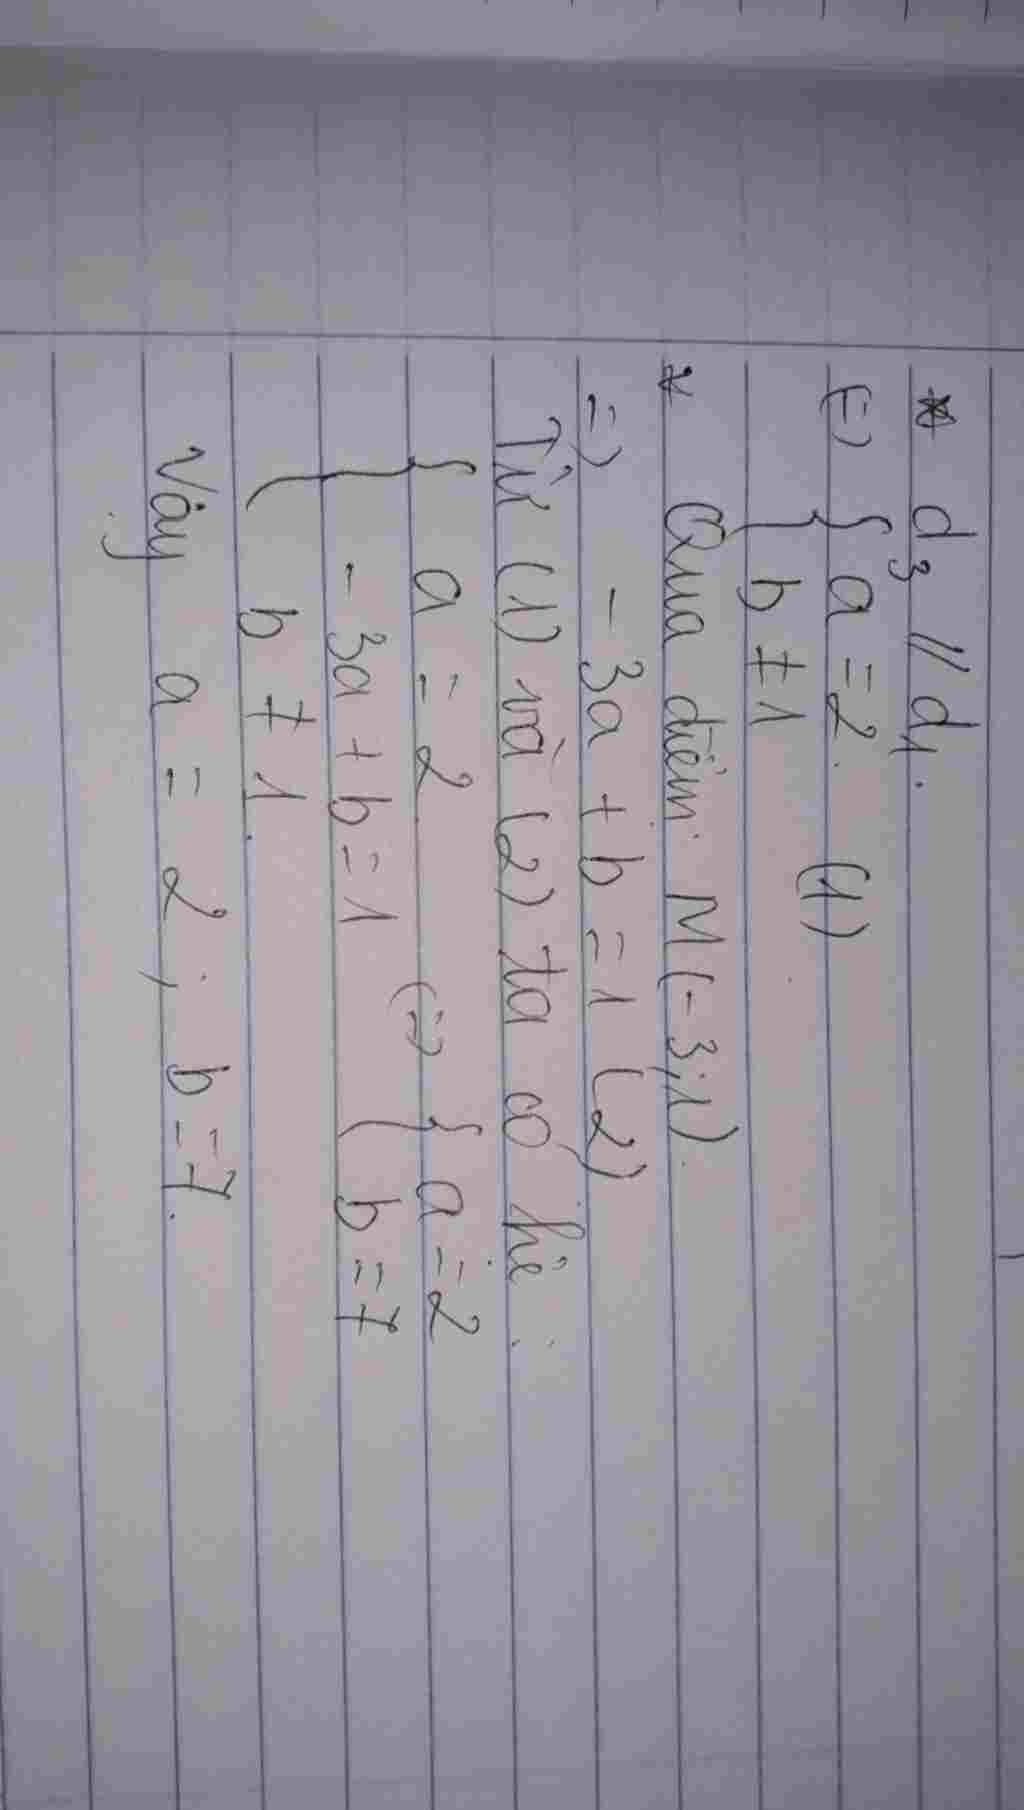 * d3 // d1.
(=) { a = 2. (1)
b ≠ 1
* Qua điểm M(-3;1).
=) - 3a + b = 1 (2)
Từ (1) và (2) ta có hệ :
{ a = 2
- 3a + b = 1 (=) { a = 2
b ≠ 1. b = 7
Vậy a = 2 ; b = 7.